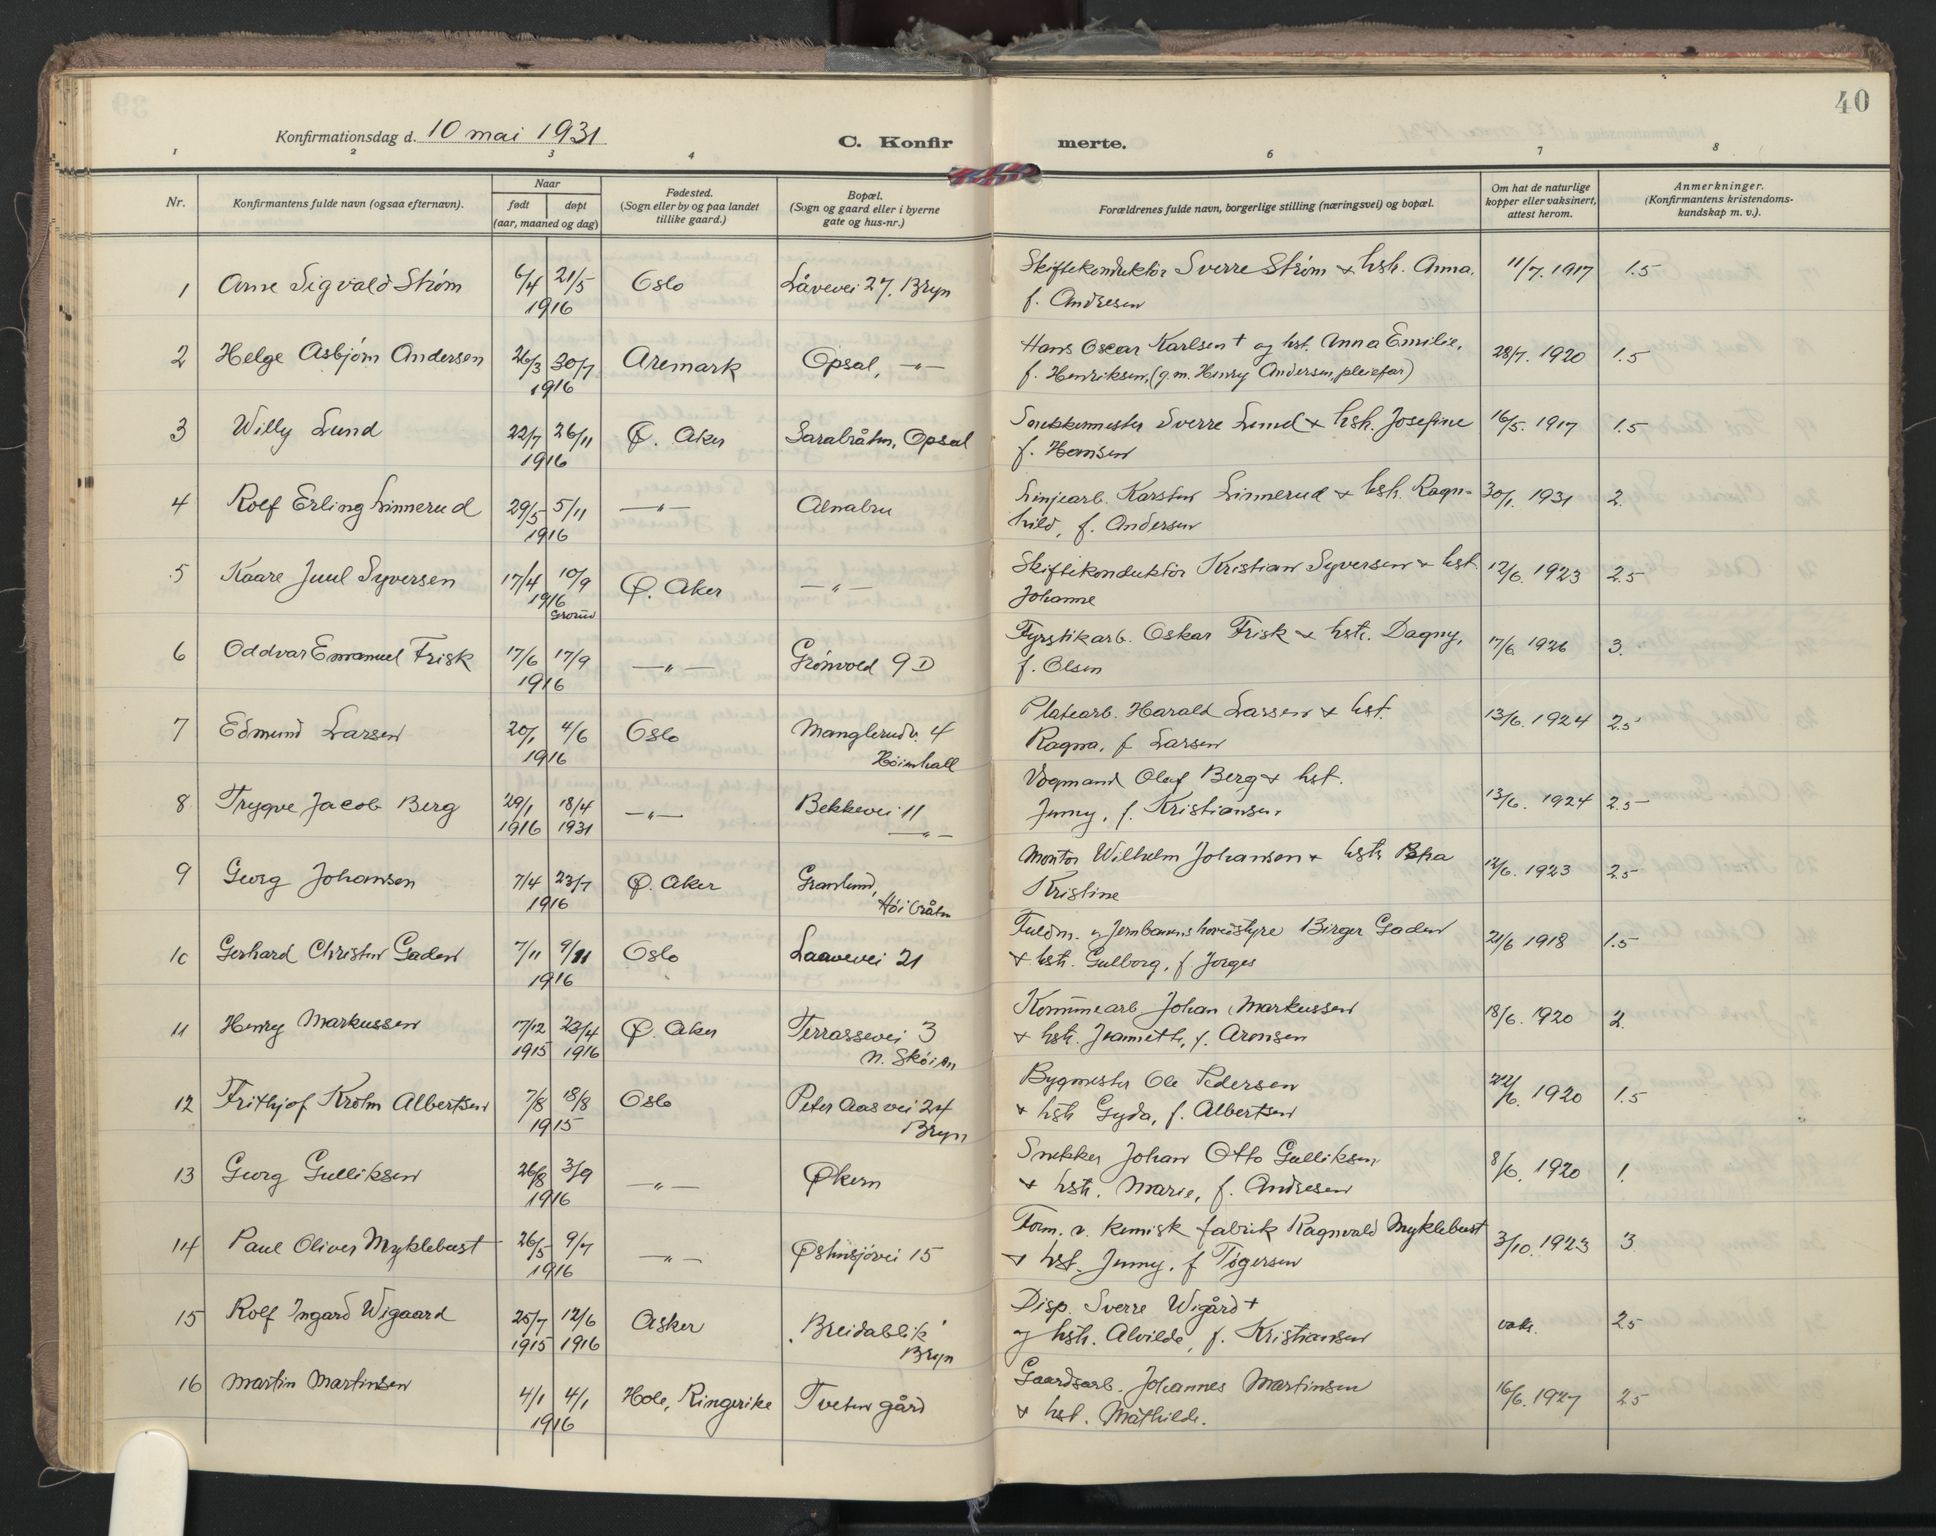 40
Konfirmationsdag d. 10 mai 1931
C. Konfirmerte.
1 2 3 4 5 6 7 8
Nr.
Konfirmantens fulde navn (ogsaa efternavn).
Naar
født døpt
(aar, maaned og dag)
Fødested.
(Sogn eller by og paa landet
tillike gaard.)
Bopæl.
(Sogn og gaard eller i byerne
gate og hus-nr.)
Forældrenes fulde navn, borgerlige stilling (næringsvei) og bopæl.
Om hat de naturlige
kopper eller vaksinert,
attest herom.
Anmerkninger.
(Konfirmantens kristendoms-
kundskap m. v.).
1 Arne Sigvald Strøm 6/4 21/5 1916 Oslo Låvevei 27, Bryn Skiftekonduktør Sverre Strøm + hstr. Anna, 11/7. 1917 1.5
f. Andresen
2 Helge Asbjørn Andersen 26/3 30/7 1916 Aremark Opsal, —"— Hans Oscar Karlsen + og hst. Anna Emilie, 28/7. 1920 1.5
f. Henriksen, (g.m. Henry Andersen, pleiefar)
3 Willy Lund 22/7 26/11 1916 Ø. Aker Sarabråten, Opsal Snekkermester Sverre Lund + hstr. Josefine 16/5. 1917 1.5
f. Hansen
4 Rolf Erling Linnerud 29/5 5/11 1916 —"— Alnabru Linjearb. Karsten Linnerud + hstr. Ragn- 30/1. 1931 2.
hild, f. Andersen
5 Kaare Juul Syversen 17/4 10/9 1916 Grorud Ø. Aker —"— Skiftekonduktør Kristian Syversen + hst. 12/6. 1923 2.5
Johanne
6 Oddvar Emanuel Frisk 17/6 17/9 1916 —"— Grønvold 9D Fyrstikarb. Oskar Frisk + hstr. Dagny, 17/6 1926 3.
f. Olsen
7 Edmund Larsen 20/1 4/6 1916 Oslo Manglerudv. 4 Platearb. Harald Larsen + hst. 13/6. 1924 2.5
Høienhall
Ragna, f. Larsen
8 Trygve Jacob Berg 29/1 1916 18/4 1931 —"— Bekkevei 11 Vogmand Olaf Berg + hst. 13/6. 1924 2.5
—"—
Jenny, f. Kristiansen
9 Georg Johansen 7/4 23/7 1916 Ø. Aker Granlund, Montør Wilhelm Johansen + hstr. 12/6. 1923 2.5
Høibråten
Kristine
10 Gerhard Christen Gaden 7/11 9/11 1916 Oslo Laavevei 21 Fuldm. v Jernbanens hovedstyre Birger Gaden 21/6 1918 1.5
+ hstr. Gulborg, f. Jorges
11 Henry Markussen 17/12 1915 23/4 1916 Ø. Aker Terrassevei 3 Kommunearb Johan Markussen 18/6. 1920 2.
N. Skøien
+ hstr. Jeanneth, f. Aronsen
12 Frithjof Krohn Albertsen 7/8 18/8 1915 Oslo Peter Aasvei 24 Bygmester Ole Pedersen 22/6. 1920 1.5
Bryn
+ hstr Gyda, f. Albertsen
13 Georg Gulliksen 26/8 3/9 1916 —"— Økern Snekker Johan Otto Gulliksen 8/6. 1920 1.
+ hstr. Marie, f. Andresen
14 Paul Oliver Myklebust 26/5 9/7 1916 —"— Østensjøvei 15 Form. v. kemisk fabrik Ragnvald Myklebust 3/10. 1923 3
+ hst. Jenny, f. Tøgersen
15 Rolf Ingard Wigaard 25/7 1915 12/6 1916 Asker "Breidablik" Disp. Sverre Wigård + vaks. 2.5
Bryn
og hstr. Alvilde, f. Kristiansen
16 Martin Martinsen 4/1 4/1 1916 Hole, Ringerike Tveten gård Gaardsarb. Johannes Martinsen 16/6. 1927 2.5
+ hst. Mathilde.